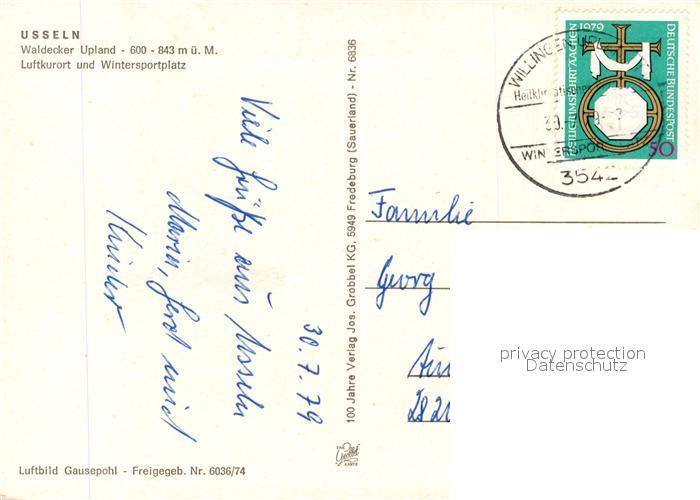 USSELN
Waldecker Upland - 600 - 843 m ü. M.
Luftkurort und Wintersportplatz
Viele Grüße aus Usseln
Maria, Gerd und
Kinder
30.7.79
Luftbild Gausepohl - Freigegeb. Nr. 6036/74
100 Jahre Verlag Jos. Grobbel KG, 5949 Fredeburg (Sauerland) - Nr. 6836
KARTE
1979
HEILIGTUMSFAHRT AACHEN
DEUTSCHE BUNDESPOST
50
WILLINGEN
Heilklimatischer
30.
WINTERSPOR
3542
Familie
Georg
282
privacy protection
Datenschutz